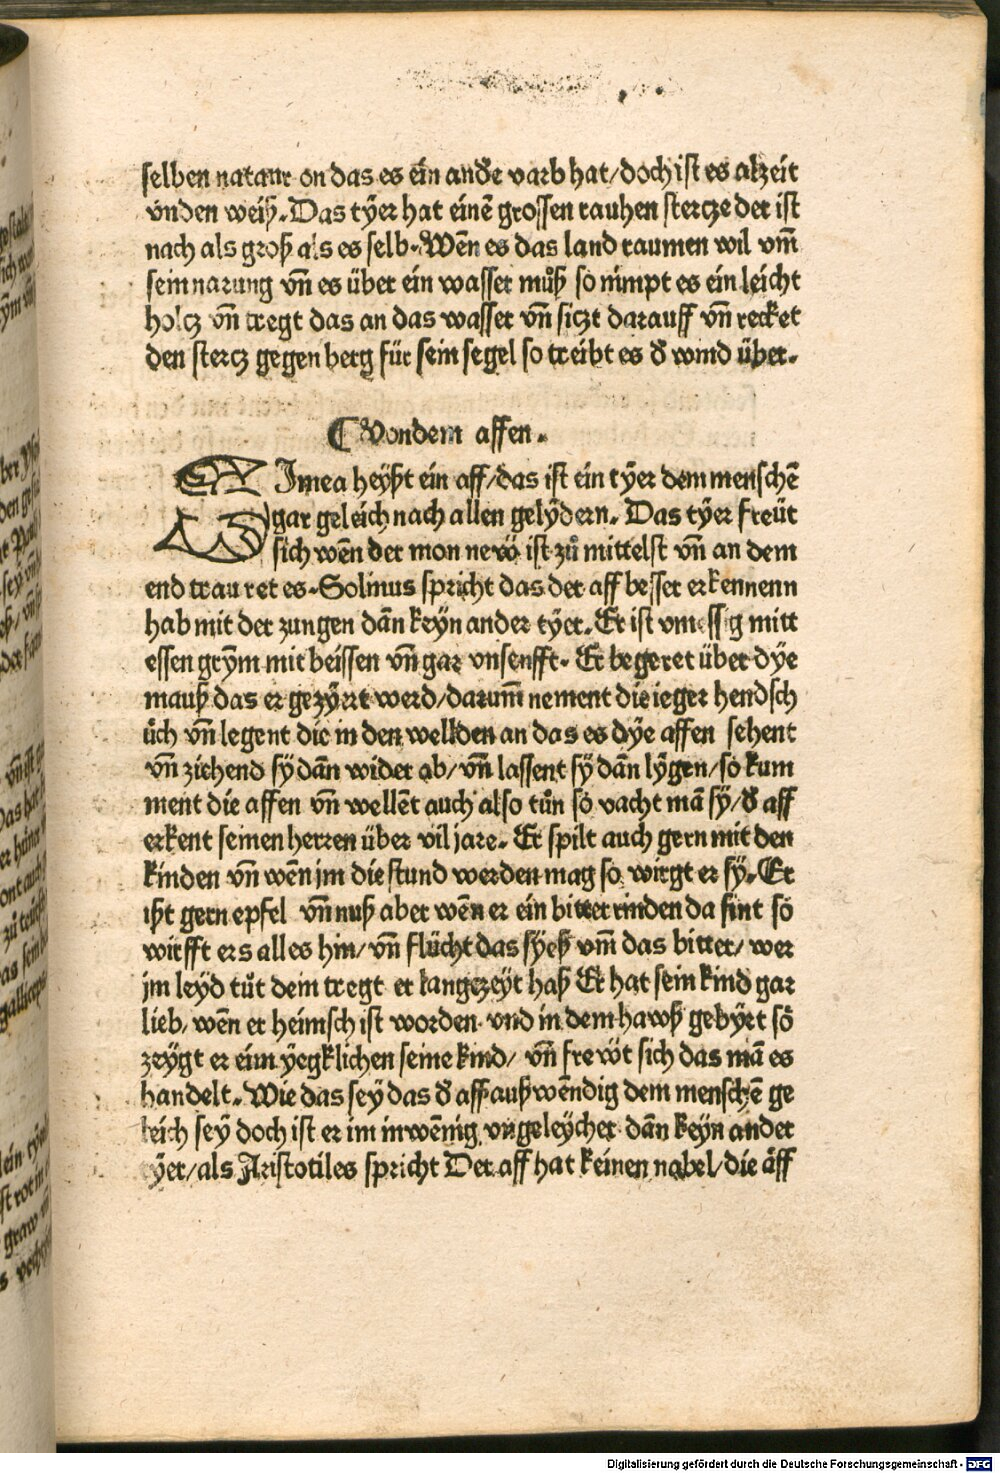 selben nataur on das es ein and̄e varb hat/doch ist es alzeit
vnden weiß. Das tÿer hat einē grossen rauhen stercze der ist
nach als groß als es selb. Wēn es das land raumen wil vm̄
sein narung vn̄ es über ein wasser můß so nimpt es ein leicht
holcz vn̄ tregt das an das wasser vn̄ siczt darauff vn̄ recket
den stercz gegen berg für sein segel so treibt es d̄ wind über.
¶ Von dem affen.
SImea heÿßt ein aff/das ist ein tÿer dem menschē
gar geleich nach allen gelÿdern. Das tÿer freüt
sich wēn der mon new ist zů mittelst vn̄ an dem
end trau ret es. Solinus spricht das der aff besser erkennenn
hab mit der zungen dān keÿn ander tÿer. Er ist vmessig mitt
essen grÿm mit beissen vn̄ gar vnsenfft. Er begeret über dÿe
mauß das er gezÿrt werd/darum̄ nement die ieger hendsch
ůch vn̄ legent die in den wellden an das es dÿe affen sehent
vn̄ ziehend sÿ dān wider ab/vn̄ lassent sÿ dān lÿgen/so kum
ment die affen vn̄ wellēt auch also tůn so vacht mā sÿ/d̄ aff
erkent seinen herren über vil jare. Er spilt auch gern mit den
kinden vn̄ wēn jm die stund werden mag so wirgt er sÿ. Er
ißt gern epfel vn̄ nuß aber wēn er ein bitter rinden da fint so
wirfft ers alles hin/vn̄ flücht das sÿeß vm̄ das bitter/wer
jm leyd tůt dem tregt er langezeÿt haß Er hat sein kind gar
lieb/wēn er heimsch ist worden vnd in dem hawß gebÿrt so
zeÿgt er eim ÿegklichen seine kind/ vn̄ frewt sich das mā es
handelt. Wie das seÿ das d̄ aff außwēndig dem menschē ge
leich seÿ doch ist er im inwēnig vngeleÿcher dān keÿn ander
tÿer/als Aristotiles spricht Der aff hat keinen nabel/die äff
Digitalisierung gefördert durch die Deutsche Forschungsgemeinschaft - DFG